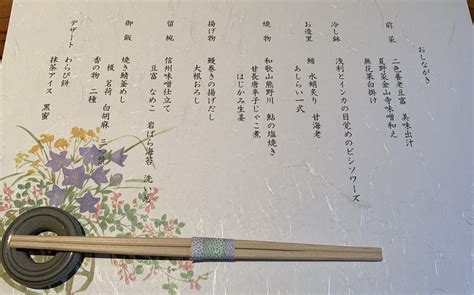 おしながき
前菜
二色養老豆富　美味出汁
夏野菜金山寺味噌和え
無花果白掛け
冷し鉢
浅利とインカの目覚めのビシソワーズ
お造里
鮪　水蛸炙り　甘海老
あしらい一式
焼物
和歌山熊野川　鮎の塩焼き
甘長唐辛子じゃこ煮
はじかみ生姜
揚げ物
鰻巻きの揚げだし
大根おろし
留椀
信州味噌仕立て
豆富　なめこ　岩ばら海苔　洗い
御飯
焼き鯖釜めし
榎　茗荷　白胡麻　三つ
香の物　二種
デザート
わらび餅
抹茶アイス　黒蜜